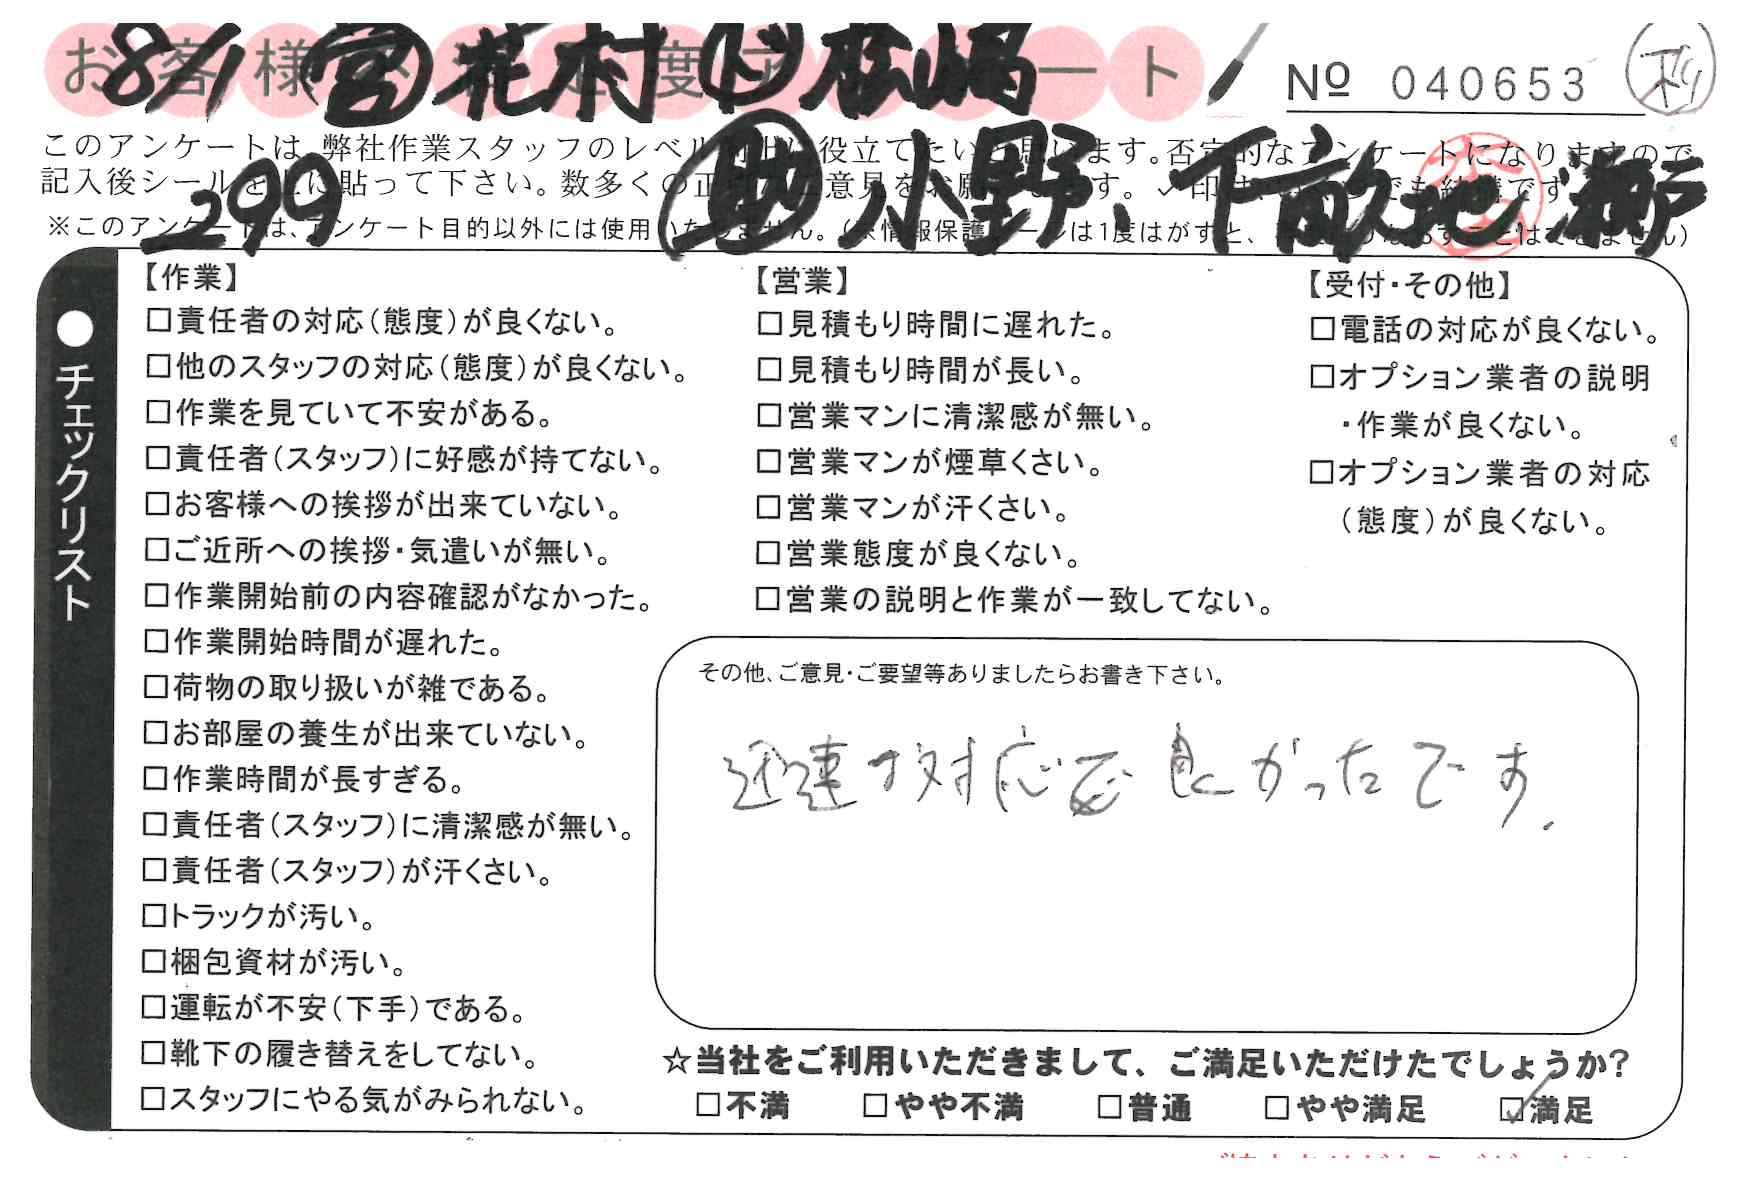 お客様 度 ート
8/1 営 花村 ド 松嶋
№ 040653
このアンケートは、弊社作業スタッフのレベル 役立てたい 思います。否定的なアンケートになりますので
299 助 小野、下畝地 瀬戸
記入後シールを上に貼って下さい。数多くの正 意見をお願 す。✓印 でも結構です
※このアンケートは、アンケート目的以外には使用いたしません。( 情報保護シールは1度はがすと、 ことはできません)
●チェックリスト
【作業】
□責任者の対応(態度)が良くない。
□他のスタッフの対応(態度)が良くない。
□作業を見ていて不安がある。
□責任者(スタッフ)に好感が持てない。
□お客様への挨拶が出来ていない。
□ご近所への挨拶・気遣いが無い。
□作業開始前の内容確認がなかった。
□作業開始時間が遅れた。
□荷物の取り扱いが雑である。
□お部屋の養生が出来ていない。
□作業時間が長すぎる。
□責任者(スタッフ)に清潔感が無い。
□責任者(スタッフ)が汗くさい。
□トラックが汚い。
□梱包資材が汚い。
□運転が不安(下手)である。
□靴下の履き替えをしてない。
□スタッフにやる気がみられない。
【営業】
□見積もり時間に遅れた。
□見積もり時間が長い。
□営業マンに清潔感が無い。
□営業マンが煙草くさい。
□営業マンが汗くさい。
□営業態度が良くない。
□営業の説明と作業が一致してない。
【受付・その他】
□電話の対応が良くない。
□オプション業者の説明
・作業が良くない。
□オプション業者の対応
(態度)が良くない。
その他、ご意見・ご要望等ありましたらお書き下さい。
迅速な対応で良かったです.
☆当社をご利用いただきまして、ご満足いただけたでしょうか?
□不満 □やや不満 □普通 □やや満足 ☑満足